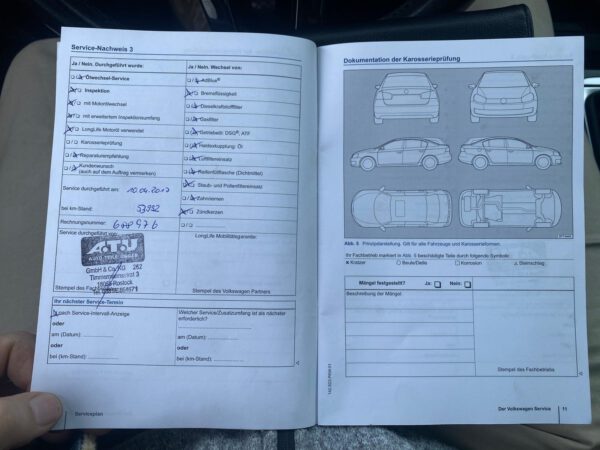 Service-Nachweis 3
Ja / Nein. Durchgeführt wurde:
Ölwechsel-Service
Inspektion
mit Motorölwechsel
mit erweitertem Inspektionsumfang
LongLife Motoröl verwendet
Karosserieprüfung
Reparaturempfehlung
Kundenwunsch
(auch auf dem Auftrag vermerken)
Service durchgeführt am: 10.04.2017
bei km-Stand:
Rechnungsnummer:
Service durchgeführt von:
A.T.U
AUTO TEILE UNGER
GmbH & Co. KG 262
3
Rostock
Stempel des
Ja / Nein. Wechsel von:
AdBlue®
Bremsflüssigkeit
Dieselkraftstofffilter
Gasfilter
Getriebeöl: DSG®, ATF
Haldexkupplung: Öl
Luftfiltereinsatz
Reifenfüllflasche (Dichtmittel)
Staub- und Pollenfiltereinsatz
Zahnriemen
Zündkerzen
LongLife Mobilitätsgarantie:
Stempel des Volkswagen Partners
Ihr nächster Service-Termin
nach Service-Intervall-Anzeige
oder
am (Datum):
oder
bei (km-Stand):
Welcher Service/Zusatzumfang ist als nächster
erforderlich?
am (Datum):
oder
bei (km-Stand):
Serviceplan
Dokumentation der Karosserieprüfung
Abb. 5 Prinzipdarstellung. Gilt für alle Fahrzeuge und Karosserieformen.
Ihr Fachbetrieb markiert in Abb. 5 beschädigte Teile durch folgende Symbole:
x Kratzer ○ Beule/Delle □ Korrosion △ Steinschlag
Mängel festgestellt? Ja: Nein:
Beschreibung der Mängel:
Stempel des Fachbetriebs
Der Volkswagen Service 11